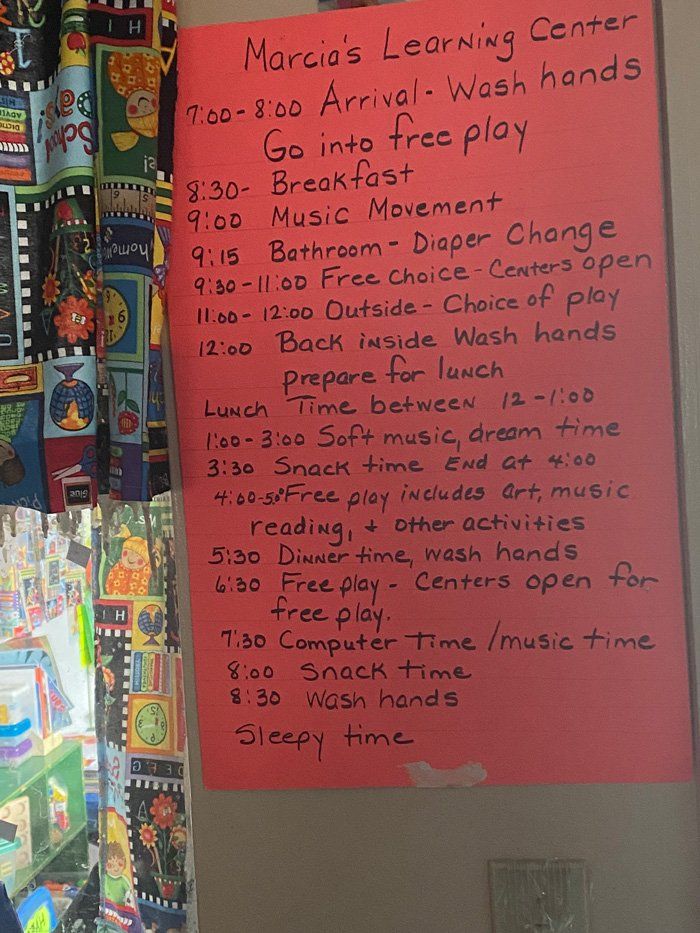 Marcia's Learning Center
7:00 - 8:00 Arrival - Wash hands
Go into free play
8:30 - Breakfast
9:00 Music Movement
9:15 Bathroom - Diaper Change
9:30 - 11:00 Free choice - Centers open
11:00 - 12:00 Outside - Choice of play
12:00 Back inside Wash hands
prepare for lunch
Lunch Time between 12 - 1:00
1:00 - 3:00 Soft music, dream time
3:30 Snack time End at 4:00
Free play includes art, music
reading, + other activities
5:30 Dinner time, wash hands
6:30 Free play - Centers open for
free play.
7:30 Computer Time / music time
8:00 Snack time
8:30 Wash hands
Sleepy time